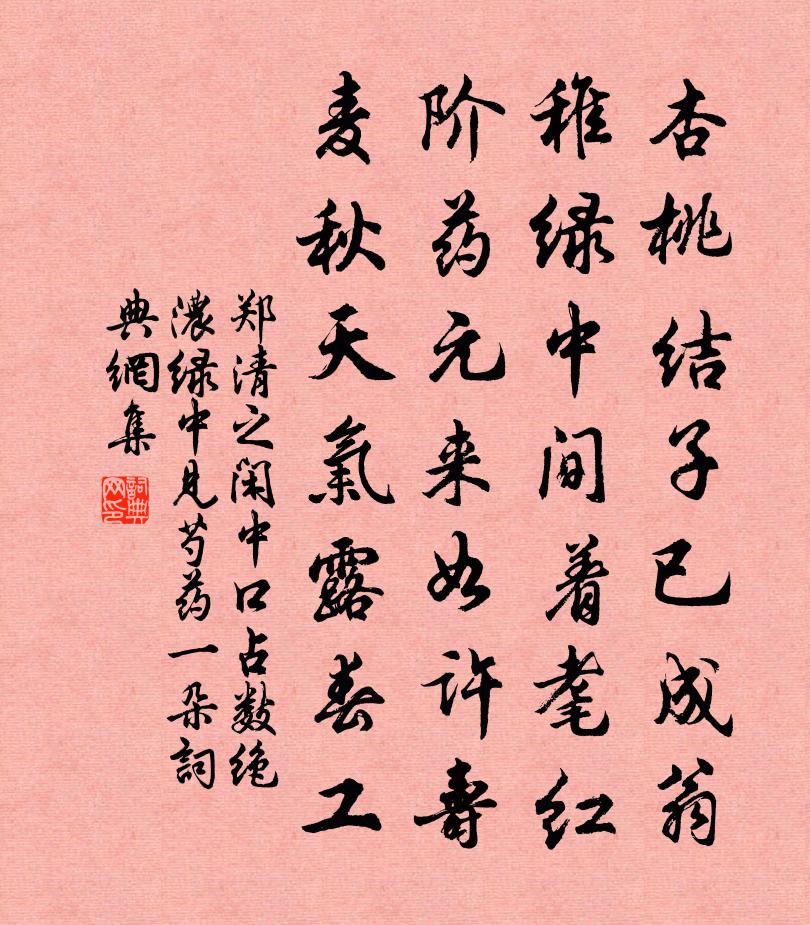 杏桃结子已成翁
稚绿中间着耄红
阶药元来如许寿
麦秋天氣露春工
郑清之闲中口占数绝
濃绿中見芍药一朵詞
典網集
詞典
网印